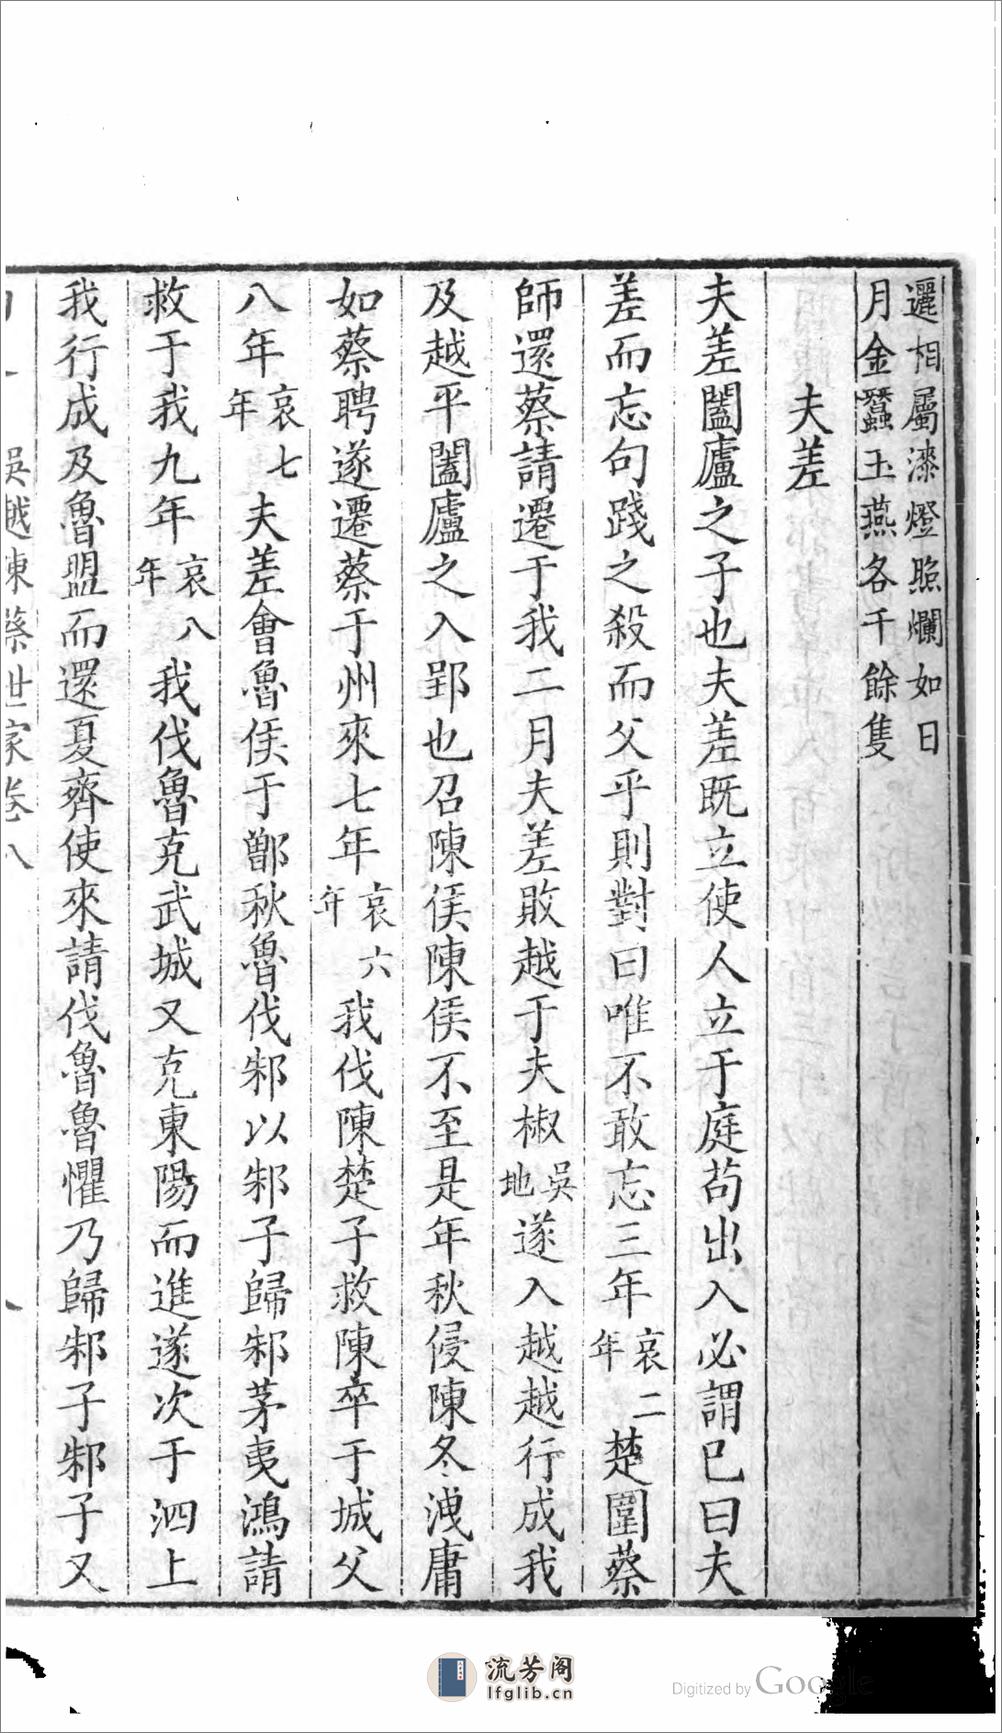 邐相屬漆燈照爛如日
月金蠶玉燕各千餘隻
夫差
夫差闔廬之子也夫差既立使人立于庭苟出入必謂已曰夫
差而忘句踐之殺而父乎則對曰唯不敢忘三年哀二年楚圍蔡
師還蔡請遷于我二月夫差敗越于夫椒吳地遂入越越行成我
及越平闔廬之入郢也召陳侯陳侯不至是年秋侵陳冬洩庸
如蔡聘遂遷蔡于州來七年哀六年我伐陳楚子救陳卒于城父
八年哀七年夫差會魯侯于鄫秋魯伐邾以邾子歸邾茅夷鴻請
救于我九年哀八年我伐魯克武城又克東陽而進遂次于泗上
我行成及魯盟而還夏齊使來請伐魯魯懼乃歸邾子邾子又
吳越陳蔡世家卷八
流芳阁
lfglib.cn
Digitized by Google